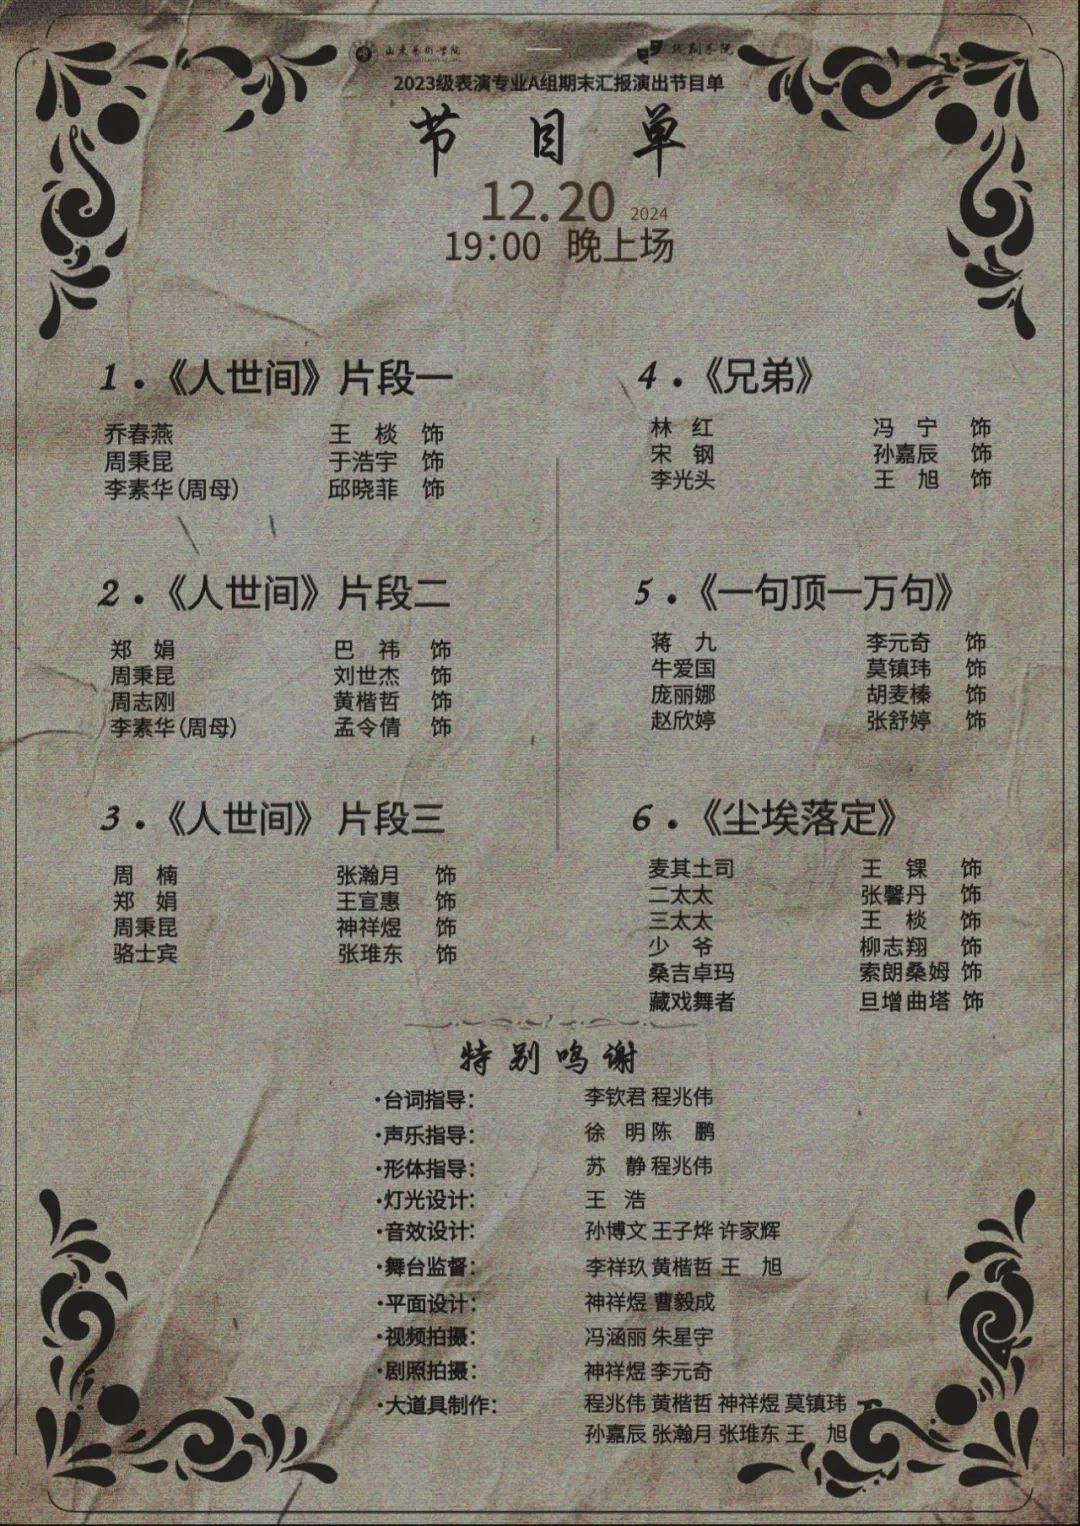 山东艺术学院
戏剧学院
2023级表演专业A组期末汇报演出节目单
节目单
12.20 2024
19:00 晚上场
1.《人世间》片段一
乔春燕 王棪 饰
周秉昆 于浩宇 饰
李素华(周母) 邱晓菲 饰
2.《人世间》片段二
郑娟 巴祎 饰
周秉昆 刘世杰 饰
周志刚 黄楷哲 饰
李素华(周母) 孟令倩 饰
3.《人世间》片段三
周楠 张瀚月 饰
郑娟 王宣惠 饰
周秉昆 神祥煜 饰
骆士宾 张琟东 饰
4.《兄弟》
林红 冯宁 饰
宋钢 孙嘉辰 饰
李光头 王旭 饰
5.《一句顶一万句》
蒋九 李元奇 饰
牛爱国 莫镇玮 饰
庞丽娜 胡麦榛 饰
赵欣婷 张舒婷 饰
6.《尘埃落定》
麦其土司 王锞 饰
二太太 张馨丹 饰
三太太 王棪 饰
少爷 柳志翔 饰
桑吉卓玛 索朗桑姆 饰
藏戏舞者 旦增曲塔 饰
特别鸣谢
·台词指导: 李钦君 程兆伟
·声乐指导: 徐明 陈鹏
·形体指导: 苏静 程兆伟
·灯光设计: 王浩
·音效设计: 孙博文 王子烨 许家辉
·舞台监督: 李祥玖 黄楷哲 王旭
·平面设计: 神祥煜 曹毅成
·视频拍摄: 冯涵丽 朱星宇
·剧照拍摄: 神祥煜 李元奇
·大道具制作: 程兆伟 黄楷哲 神祥煜 莫镇玮
孙嘉辰 张瀚月 张琟东 王旭